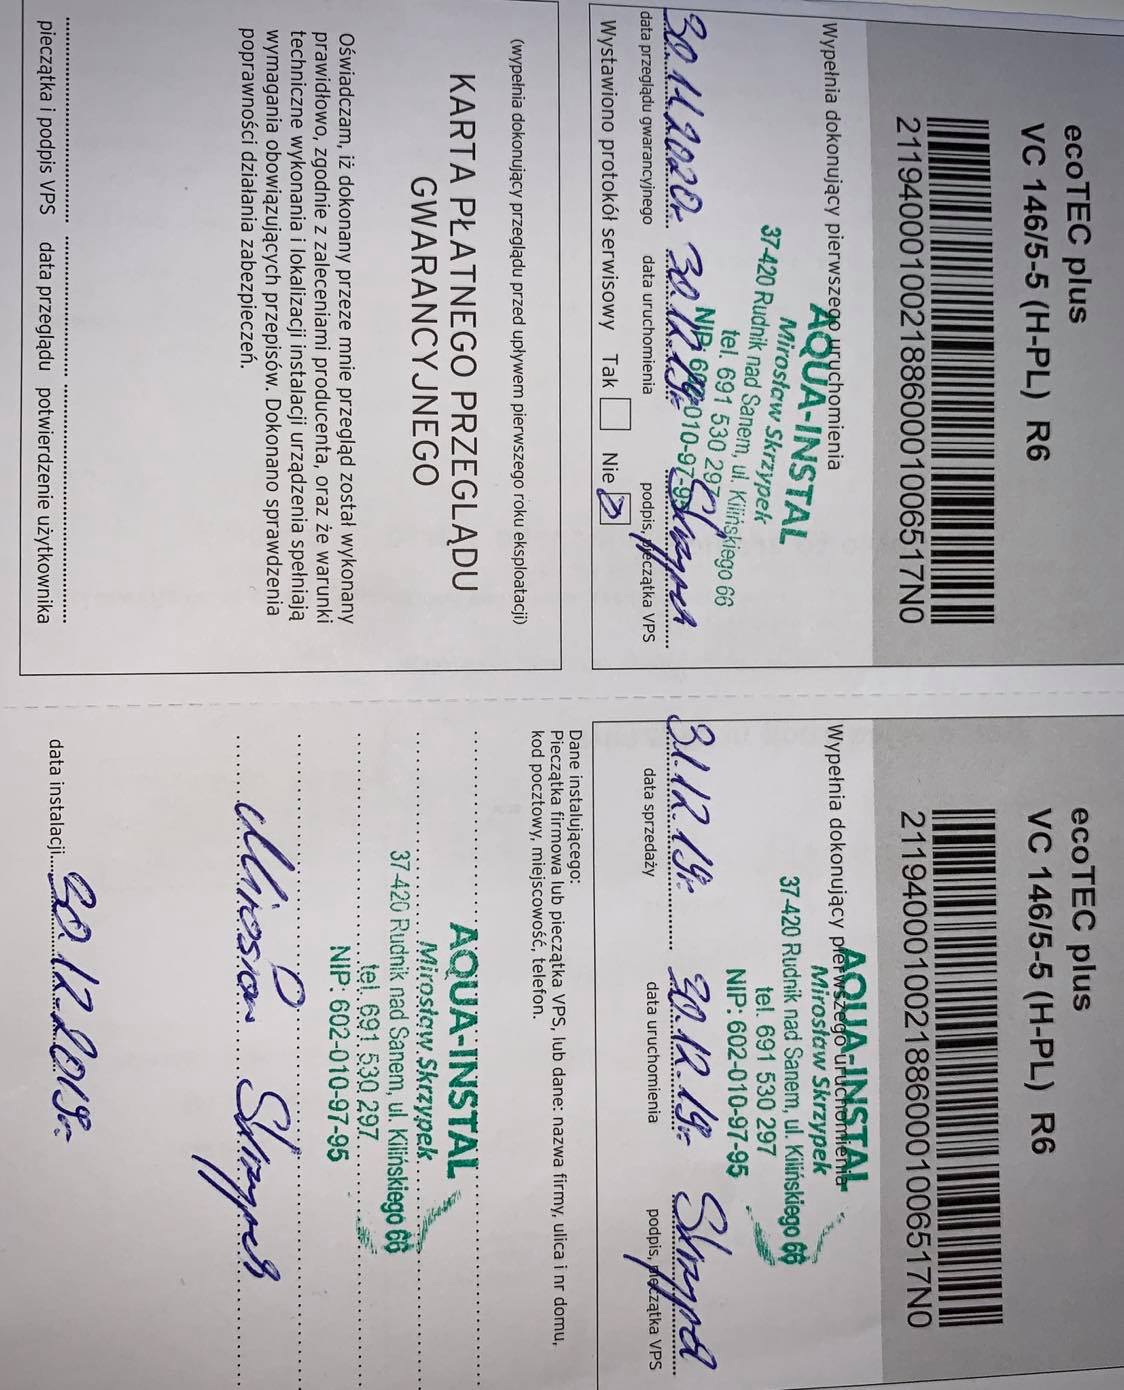 ecoTEC plus
VC 146/5-5 (H-PL) R6
21194000100218860001006517N0
Wypełnia dokonujący pierwszego uruchomienia
AQUA-INSTAL
Mirosław Skrzypek
37-420 Rudnik nad Sanem, ul. Kilińskiego 66
tel. 691 530 297
NIP: 602-010-97-95
30.11.2020r. 30.12.19r. Skrzypek
data przeglądu gwarancyjnego data uruchomienia podpis, pieczątka VPS
Wystawiono protokół serwisowy Tak Nie
(wypełnia dokonujący przeglądu przed upływem pierwszego roku eksploatacji)
KARTA PŁATNEGO PRZEGLĄDU
GWARANCYJNEGO
Oświadczam, iż dokonany przeze mnie przegląd został wykonany
prawidłowo, zgodnie z zaleceniami producenta, oraz że warunki
techniczne wykonania i lokalizacji instalacji urządzenia spełniają
wymagania obowiązujących przepisów. Dokonano sprawdzenia
poprawności działania zabezpieczeń.
pieczątka i podpis VPS data przeglądu potwierdzenie użytkownika
ecoTEC plus
VC 146/5-5 (H-PL) R6
21194000100218860001006517N0
Wypełnia dokonujący pierwszego uruchomienia
AQUA-INSTAL
Mirosław Skrzypek
37-420 Rudnik nad Sanem, ul. Kilińskiego 66
tel. 691 530 297
NIP: 602-010-97-95
31.12.19r. 30.12.19r. Skrzypek
data sprzedaży data uruchomienia podpis, pieczątka VPS
Dane instalującego:
Pieczątka firmowa lub pieczątka VPS, lub dane: nazwa firmy, ulica i nr domu,
kod pocztowy, miejscowość, telefon.
AQUA-INSTAL
Mirosław Skrzypek
37-420 Rudnik nad Sanem, ul. Kilińskiego 66
tel. 691 530 297
NIP: 602-010-97-95
Mirosław Skrzypek
data instalacji 30.12.2019r.